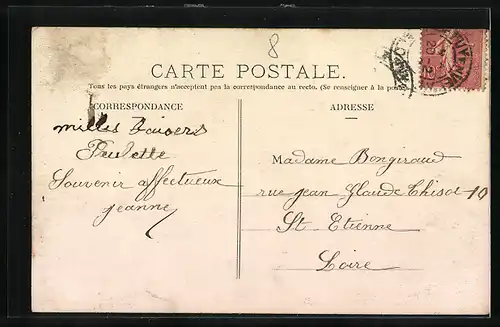 8
CARTE POSTALE.
Tous les pays étrangers n'acceptent pas la correspondance au recto. (Se renseigner à la poste)
CORRESPONDANCE
ADRESSE
milles Baisers
Paulette
Souvenir affectueux
jeanne
Madame Bongiraud
rue jean Claude Thisot 10
St Etienne
Loire